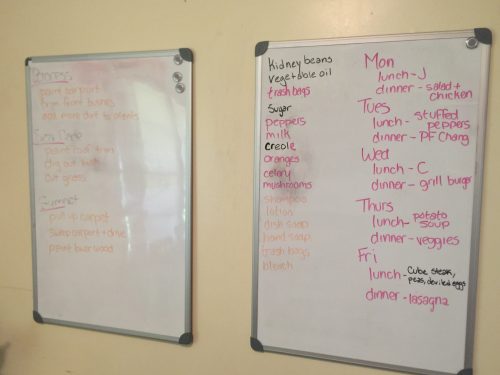 paint carport
trim front bushes
add more dirt to plants
paint roof trim
cut grass
Summer
pull up carpet
Sweep carport + drive
paint over wood
Kidney beans
vegetable oil
trash bags
Sugar
peppers
milk
creole
oranges
celery
mushrooms
shampoo
lotion
dish soap
hand soap
trash bags
bleach
Mon
lunch - J
dinner - salad + chicken
Tues
lunch - stuffed peppers
dinner - PF Chang
Wed
lunch - C
dinner - grill burger
Thurs
lunch - potato soup
dinner - veggies
Fri
lunch - Cube steak,
peas, deviled eggs
dinner - lasagna